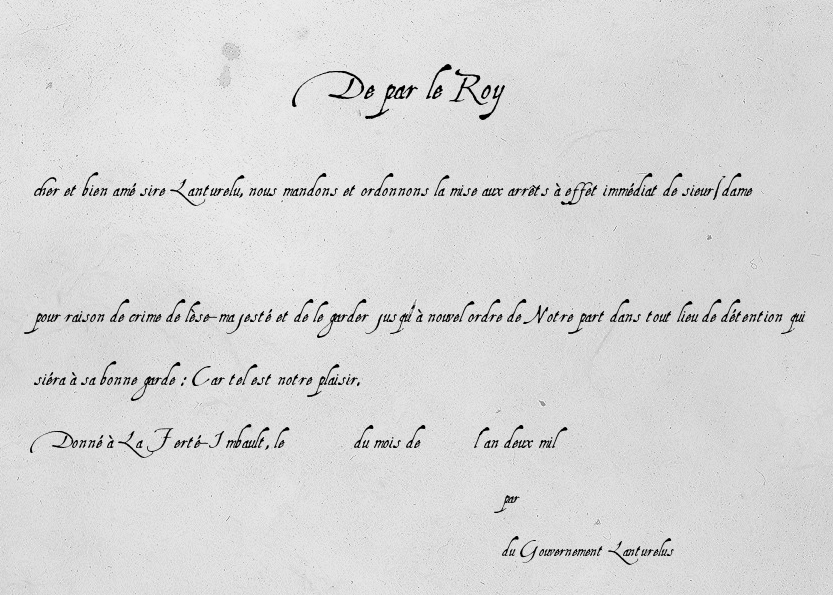 De par le Roy
cher et bien amé sire Lanturelu, nous mandons et ordonnons la mise aux arrêts à effet immédiat de sieur/dame
pour raison de crime de lèse-majesté et de le garder jusqu'à nouvel ordre de Notre part dans tout lieu de détention qui
siéra à sa bonne garde : Car tel est notre plaisir.
Donné à La Ferté-Imbault, le du mois de l'an deux mil
par
du Gouvernement Lanturelus